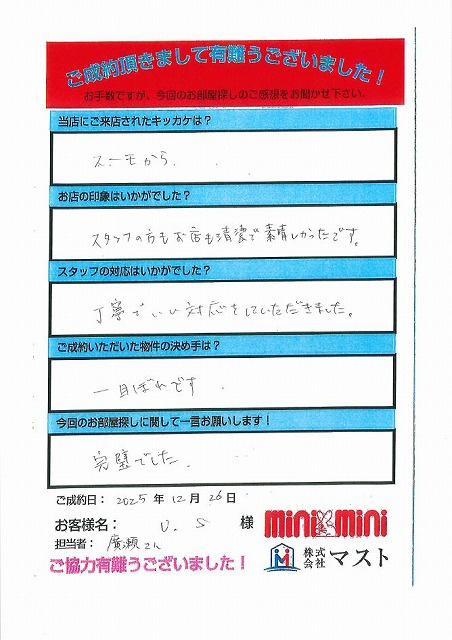 ご成約頂きまして有難うございました！
お手数ですが、今回のお部屋探しのご感想をお聞かせ下さい。
当店にご来店されたキッカケは？
スーモから.
お店の印象はいかがでした？
スタッフの方もお店も清潔で素晴しかったです。
スタッフの対応はいかがでした？
丁寧でいい対応をしていただきました。
ご成約いただいた物件の決め手は？
一目ぼれです.
今回のお部屋探しに関して一言お願いします！
完璧でした.
ご成約日： 2025 年 12 月 26 日
お客様名： U. S 様
担当者： 廣瀬さん
ご協力有難うございました！
mini mini
株式会社 マスト